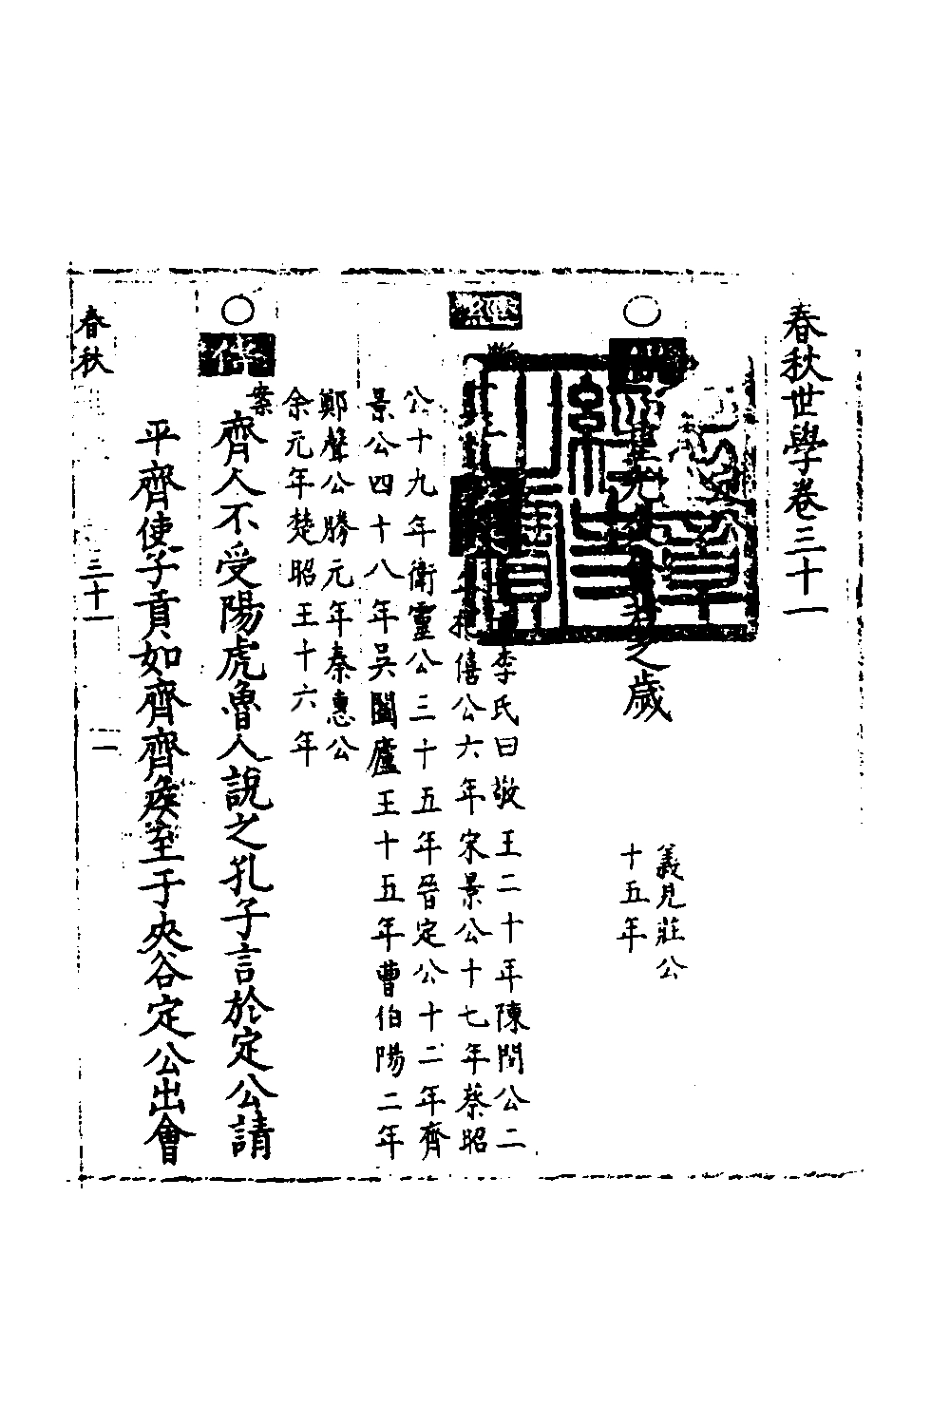 春秋世學卷三十一
之歲
義見莊公
十五年
經
李氏曰敬王二十年陳閔公二
杞僖公六年宋景公十七年蔡昭
公十九年衛靈公三十五年晉定公十二年齊
景公四十八年吳闔廬王十五年曹伯陽二年
鄭聲公勝元年秦惠公
余元年楚昭王十六年
案
齊人不受陽虎魯人說之孔子言於定公請
平齊使子貢如齊齊矦至于夾谷定公出會
春秋 三十一 一